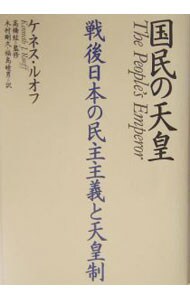 国民の天皇
The People's Emperor
戦後日本の民主主義と天皇制
ケネス・ルオフ
Kenneth J. Ruoff
高橋紘・監修
木村剛久・福島睦男・訳